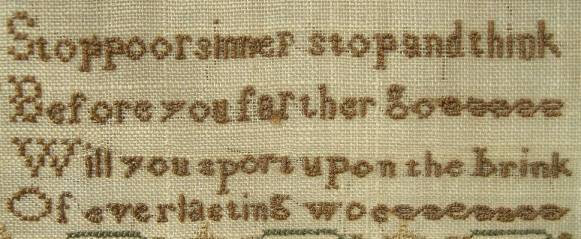 Stop poor sinner stop and think
Before you farther go
Will you sport upon the brink
Of everlasting woe